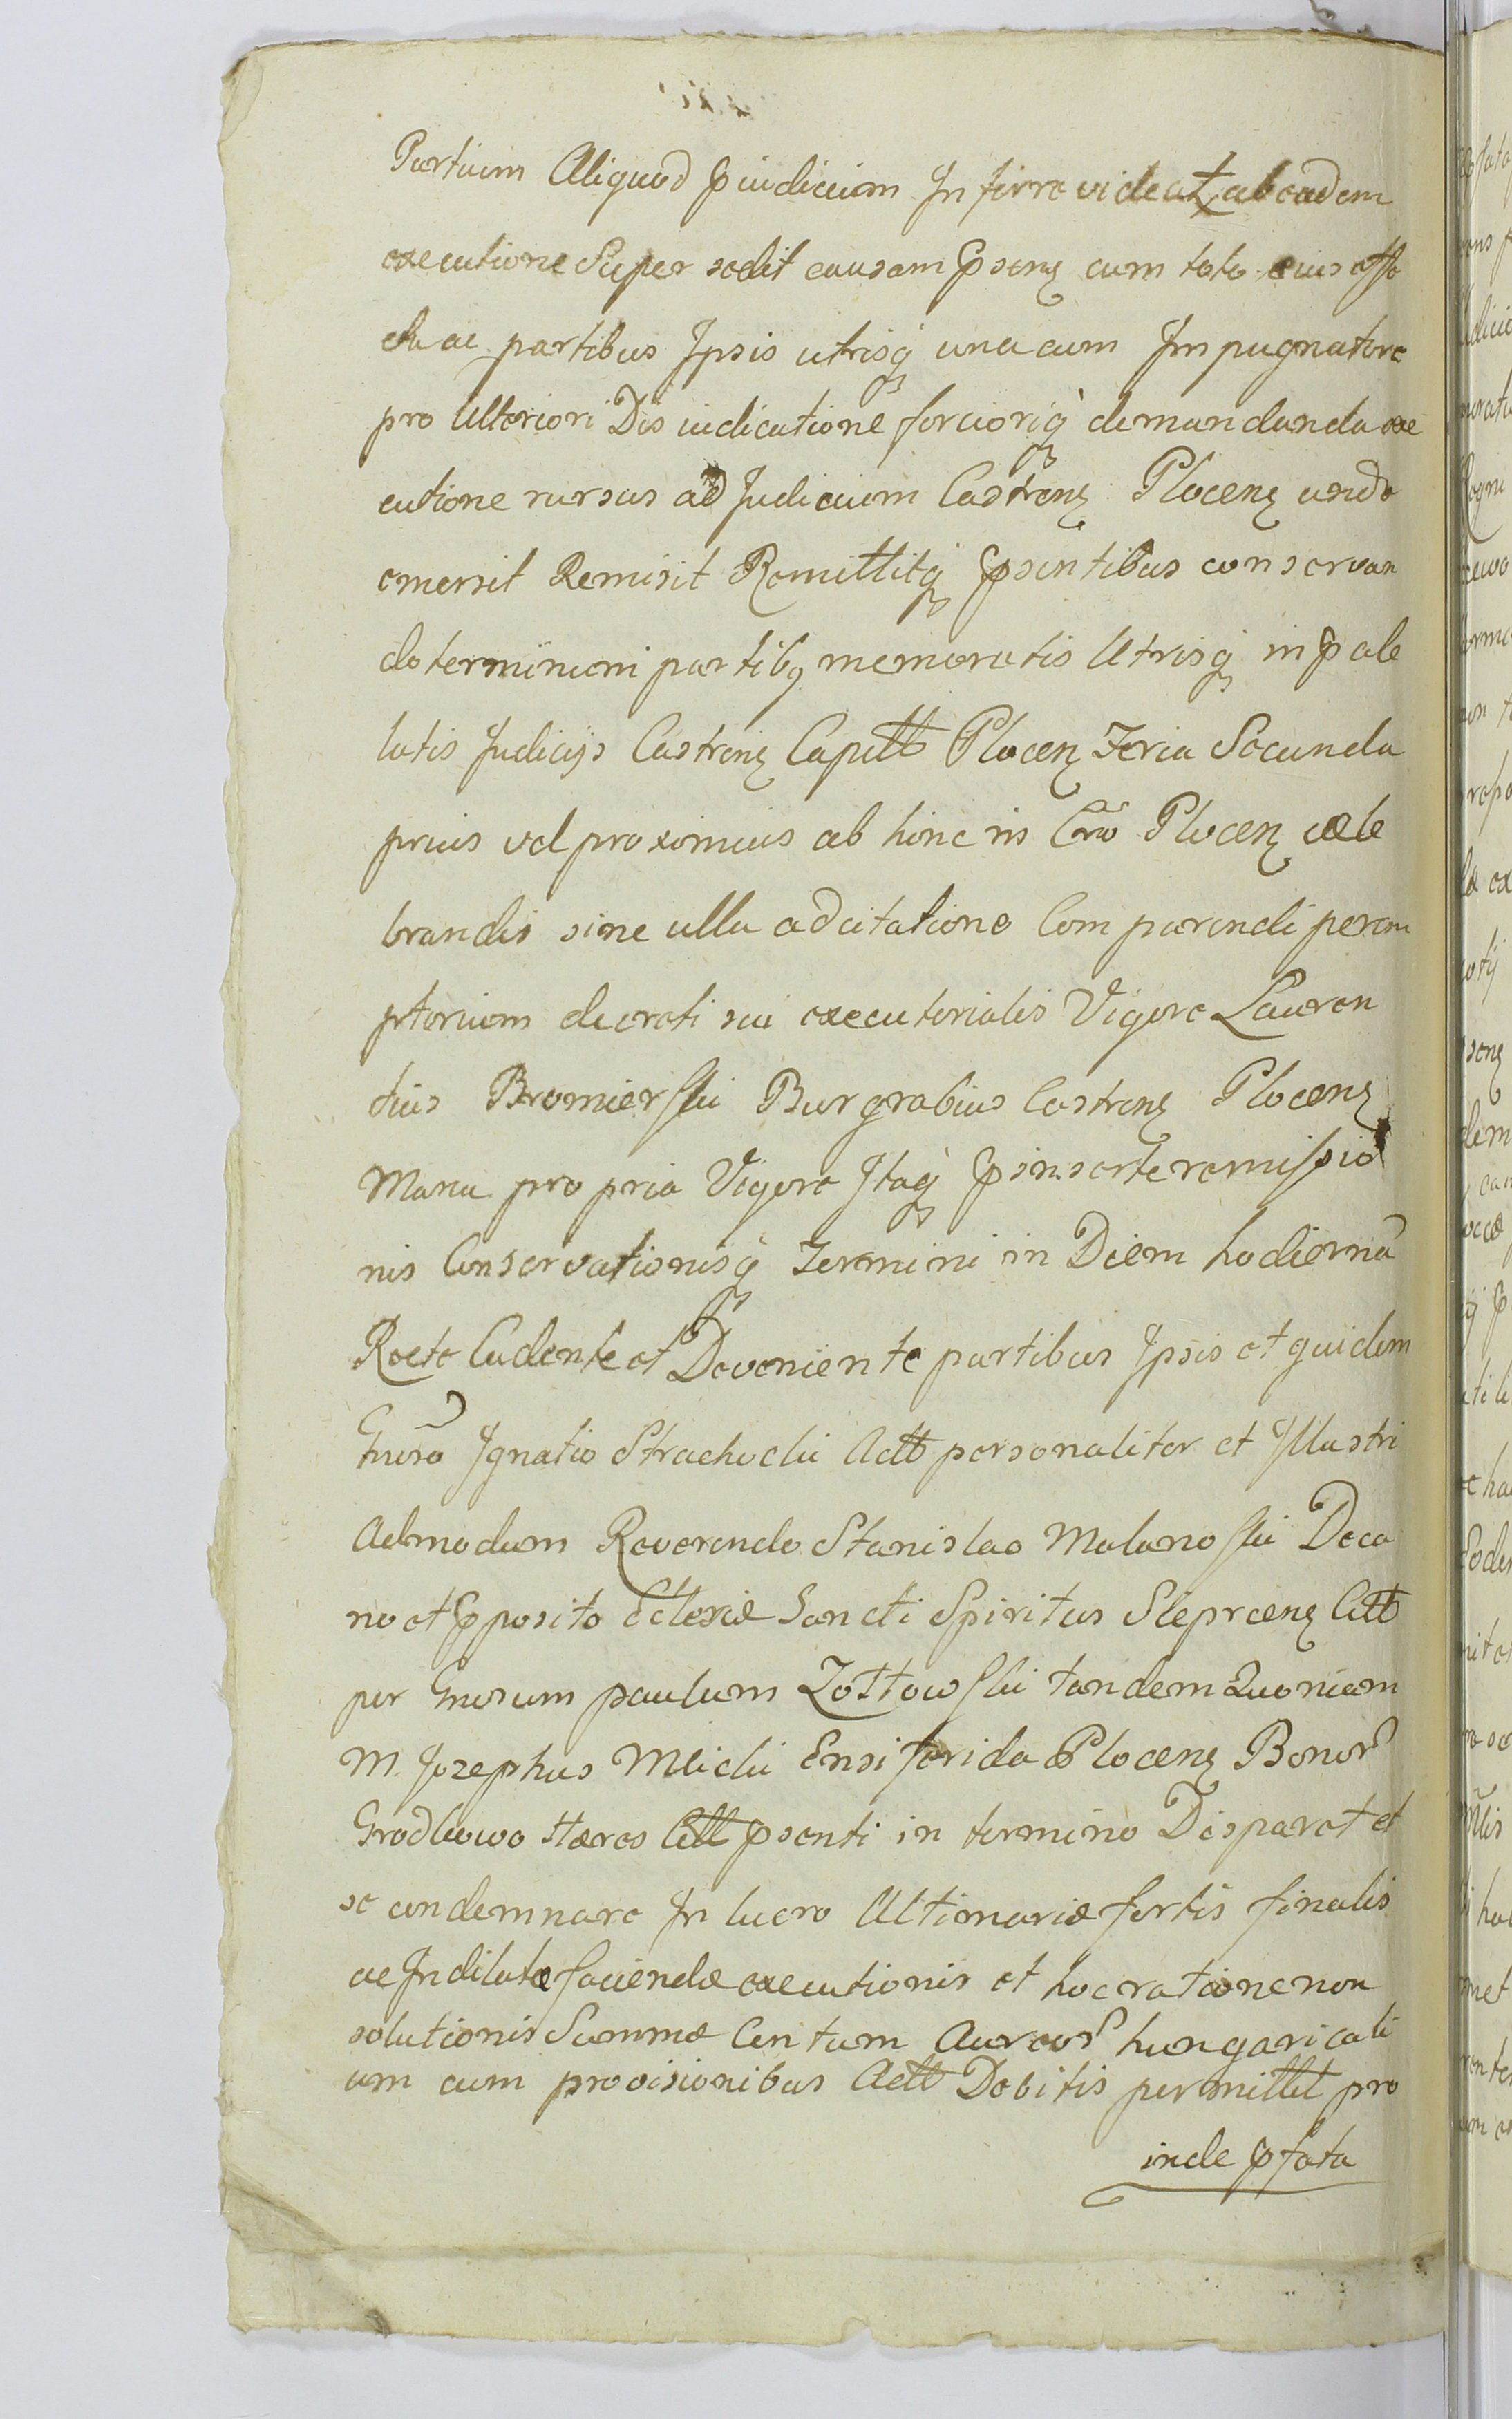 Partium Aliquod Pjudicium Inferre videat ab eadem
executione Super sedit causam Psenz cum toto eius effe
ctu ac partibus Ipsis utrisq una cum Impugnatore
pro Ulteriori Dis iudicatione forcioriq demandanda exe
cutione rursus ad Judicium Castrenz Plocenz unde
emersit Remisit Remittitq Psentibus conservan
do terminum partibq memoratis Utrisq in Pale
latis Judicijs Castrenz Capittb Plocenz Feria Secunda
prius vel proximius ab hinc in Cro Plocenz cele
brandis sine ulla adcitatione Comparendi perem
ptorium decreti sui executorialis Vigore Lauren
tius Bromierski Burgrabius Castrenz Plocenz
Manu propria Vigore Itaq Pinserte remissio
nis Conservationisq Termini in Diem hodierna
Recte Cadente et Deveniente partibus Ipsis et quidem
Gnrso Ignatio Strachocki Acttb personaliter et Illustri
Admodum Reverendo Stanislao Malanoski Deca
no et Pposito Eclesiæ Sancti Spiritus Sieprcenz Cittb
per Gnrosum paulum Zottowski tandem Quoniam
M. Jozephus Mlicki Ensiferida Plocenz Bonor
Grodkowo Hæres Citt Psenti in termino Disparet et
se condemnare In lucro Ultimariæ fortis finalis
ac Indilatæ faciendæ executionis et hoc ratione non
solutionis Summæ Centum Aureor hungaricali
um cum provisionibus Acttb Debitis permittit pro
inde Pfata